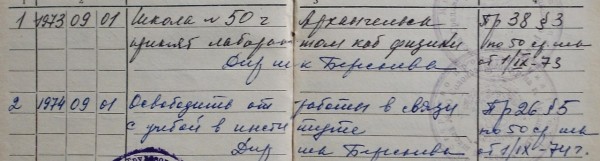 1 1973 09 01 Школа №50 г Архангельск Пр 38 §3
принят лаборантом каб физики по 50 ср. шк
Дир шк Берсенева от 1/IX-73
2 1974 09 01 Освободить от работы в связи Пр 26 §5
с учебой в институте по 50 ср. шк
Дир шк Берсенева от 1/IX-74г.